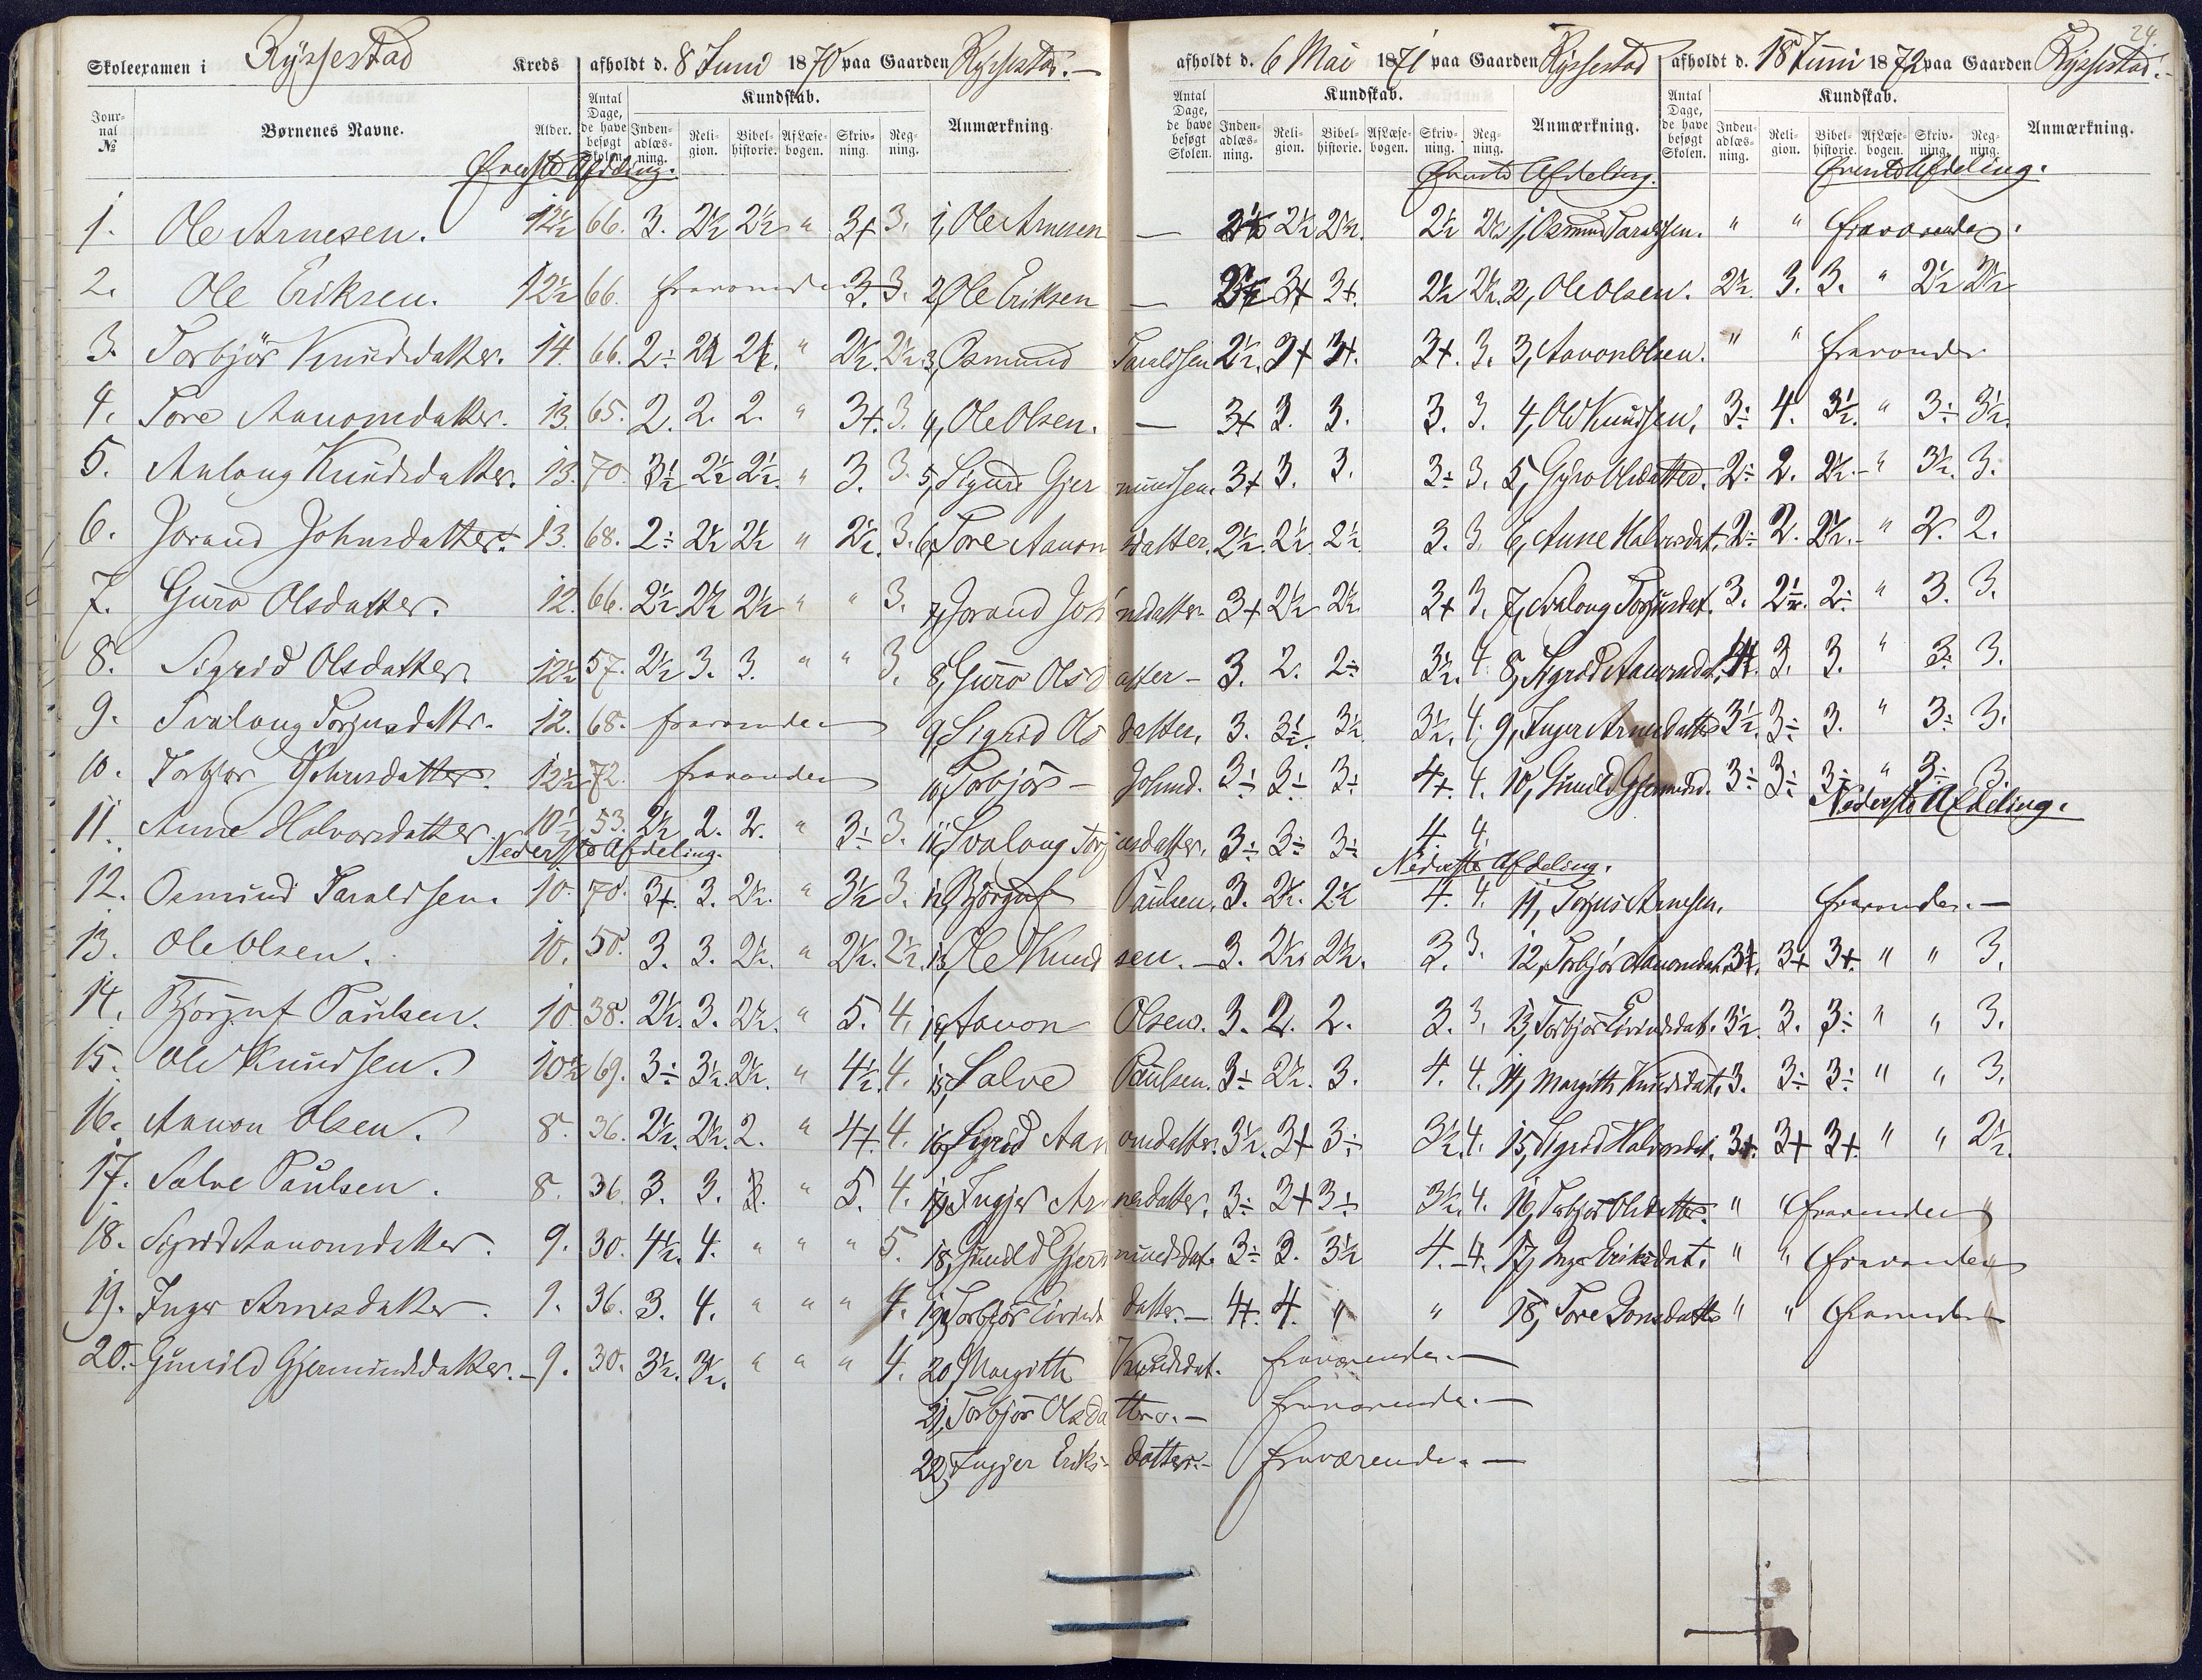 24.
Skoleexamen i Ryssestad Kreds afholdt d. 8 Juni 1870 paa Gaarden Ryssestad.—
Jour-nal № Børnenes Navne. Alder. Antal Dage, de have besøgt Skolen. Kundskab. Inden-adlæs-ning. Reli-gion. Bibel-historie. AfLæse-bogen. Skriv-ning. Reg-ning. Anmærkning.
Øverste Afdeling.
1. Ole Arnesen. 12½ 66. 3. 2½ 2½ " 3+ 3. 1, Ole Arnesen
2. Ole Eriksen. 12½ 66. 3. 3. 2, Ole Eriksen
3. Torbjør Knudsdatter. 14. 66. 2÷ 2½ 2½. " 2½. 2½. 3, Osmund
4. Tore Aanonsdatter. 13. 65. 2. 2. 2. " 3+. 3. 4, Ole Olsen.
5. Aslaug Knudsdatter. 13. 70. 3½ 2½ 2½. " 3. 3. 5, Sigurd Gjer
6. Jorand Johnsdatter. 13. 68. 2÷ 2½ 2½ " 2½. 3. 6, Tore Aanon
7. Guro Olsdatter. 12. 66. 2½ 2½ 2½ " " 3. 7, Jorand Joh
8. Sigrid Olsdatter 12½ 57. 2½ 3. 3. " " 3. 8, Guro Olsd
9. Svalaug Torjusdatter. 12. 68. fraværende 9, Sigrid Ols
10. Torbjør Johnsdatter. 12½ 72. fraværende 10, Torbjør —
11. Anne Halvorsdatter. 10½ 53. 2½ 2. 2. " 3÷ 3. 11, Svalaug Torj
Nederste Afdeling.
12. Osmund Taraldsen. 10. 70. 3+. 3. 2½. " 3½ 3. 12, Bjørguf
13. Ole Olsen. 10. 50. 3. 3. 2½. " 2½. 2½. 13, Ole Knud
14. Bjørguf Paulsen. 10. 38. 2½. 3. 2½. " 5. 4. 14, Aanon
15. Ole Knudsen. 10½ 69. 3÷ 3½. 2½. " 4½. 4. 15, Salve
16. Aanon Olsen. 8. 36. 2½. 2½. 2. " 4+. 4. 16, Sigrid Aan
17. Salve Paulsen. 8. 36. 3. 3. 3. " 5. 4. 17, Ingjer Ar
18. Sigrid Aanonsdatter. 9. 30. 4½. 4. " " " 5. 18, Gunild Gjer
19. Inger Arnesdatter. 9. 36. 3. 4. " " " 4. 19, Torbjør Eivinds
20. Gunild Gjermundsdatter. — 9. 30. 3½. 3½. " " " 4. 20, Margith
21, Torbjør Olsda
22, Ingjer Eriks-
afholdt d. 6 Mai 1871 paa Gaarden Ryssestad
Antal Dage, de have besøgt Skolen. Kundskab. Inden-adlæs-ning. Reli-gion. Bibel-historie. AfLæse-bogen. Skriv-ning. Reg-ning. Anmærkning.
Øverste Afdeling.
— 2½ 2½. 2½ 2½ 1, Osmund Taraldsen.
— 3+ 3+. 2½ 2½. 2, Ole Olsen.
Taraldsen 2½. 3+ 3+. 3+. 3. 3, Aanon Olsen.
— 3+ 3. 3. 3. 3. 4, Ole Knudsen.
mundsen. 3+ 3. 3. 3÷ 3. 5, Gyro Olsdatter.
sdatter. 2½. 2½ 2½ 3. 3. 6, Anne Halvorsdat.
nsdatter. 3+ 2½ 2½. 3+ 3. 7, Svalaug Torjusdat.
atter — 3. 2. 2÷ 3½. 4. 8, Sigrid Aanonsdat.
datter. 3. 3½. 3½ 3½. 4. 9, Inger Arnesdatter
Johnsd. 3÷ 3÷ 3÷ 4+. 4. 10, Gunild Gjermundsd.
usdatter. 3÷ 3÷ 3÷ 4. 4.
Nederste Afdeling.
Paulsen. 3. 2½. 2½ 4. 4. 11, Torjus Arnesen.
sen. — 3. 2½ 2½. 3. 3. 12, Torbjør Aanonsdat.
Olsen. 3. 2. 2. 3. 3. 13, Torbjør Eivindsdat.
Paulsen. 3÷ 2½. 3. 4. 4. 14, Margith Knudsdat.
onsdatter. 3½. 3+ 3÷ 3½. 4. 15, Sigrid Halvorsdat.
nesdatter. 3÷ 3+ 3÷ 3½. 4. 16, Torbjør Olsdatter.
mundsdat. 3÷ 3. 3½ 4. — 4. 17, Inger Eriksdat.
datter. — 4+. 4. " " 18, Tore Jonsdatter
Knudsdat. fraværende. —
tter. — fraværende. —
datter. — fraværende. —
afholdt d. 18 Juni 1872 paa Gaarden Ryssestad.
Antal Dage, de have besøgt Skolen. Kundskab. Inden-adlæs-ning. Reli-gion. Bibel-historie. AfLæse-bogen. Skriv-ning. Reg-ning. Anmærkning.
Øverste Afdeling.
" " fraværende.
2½. 3. 3. " 2½ 2½
" " fraværende
3÷ 4. 3½. " 3÷ 3½.
2÷ 2. 2½. " 3½. 3.
2÷ 2. 2½. " 2. 2.
3. 2½. 2÷ " 3. 3.
4+. 3. 3. " 3÷ 3.
3½. 3÷ 3. " 3÷ 3.
3÷ 3÷ 3÷ " 3÷ 3.
Nederste Afdeling.
fraværende. —
3+. 3+ 3+. " " 3.
3½. 3. 3÷ " " 3.
3. 3÷ 3÷ " " 3.
3+. 3+ 3+. " " 2½.
" " fraværende "
" " fraværende "
" " fraværende "